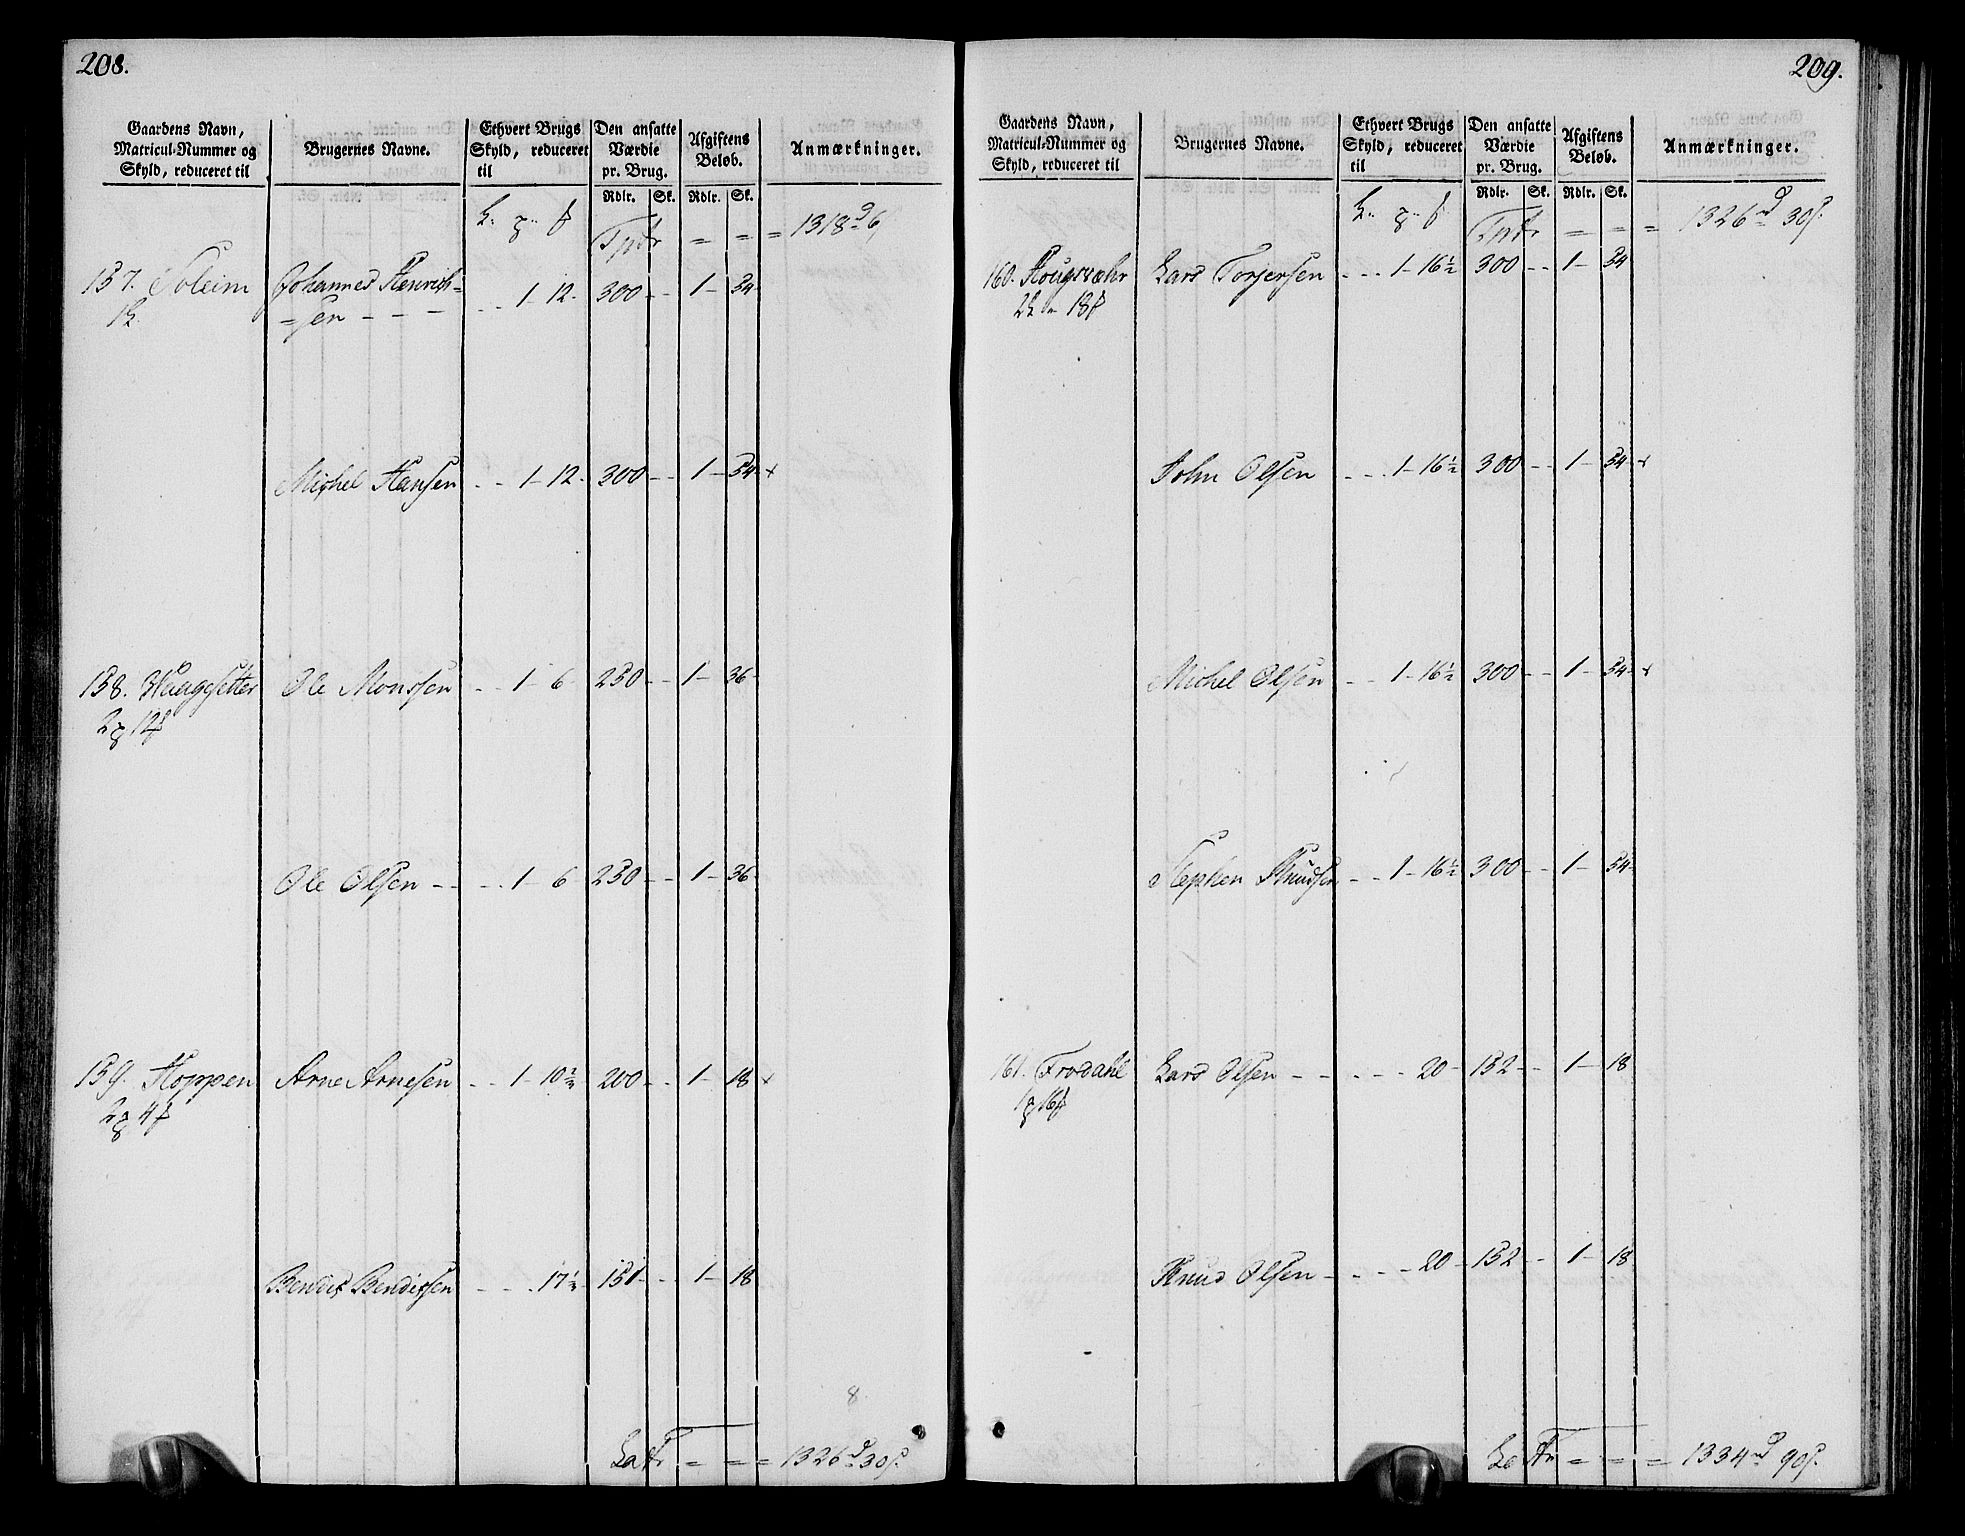 208.
Gaardens Navn, Matricul-Nummer og Skyld, reduceret til
Brugernes Navne.
Ethvert Brugs Skyld, reduceret til
Den ansatte Værdie pr. Brug.
Afgiftens Beløb.
Anmærkninger.
Rdlr. Sk. Rdlr. Sk.
Tptr = = = 1318 d 6
157. Soleim Johannes Henrich= - - 1-12. 300 - - 1-54
=sen - - -
Michel Hansen - - 1-12. 300 - - 1-54 x
158. Waagesetter Ole Monssen - - 1-6 250 - - 1-36
Ole Olsen - - - - 1-6 250 - - 1-36
159. Hoppen Arne Arnesen - - 1-10½ 200 - - 1-18 x
Bendix Bendixsen - - - 17½ 151 - - 1-18
8
Latr = = = 1326 d 30 s.
209.
Gaardens Navn, Matricul-Nummer og Skyld, reduceret til
Brugernes Navne.
Ethvert Brugs Skyld, reduceret til
Den ansatte Værdie pr. Brug.
Afgiftens Beløb.
Anmærkninger.
Rdlr. Sk. Rdlr. Sk.
Tptr = = = 1326 d 30 s.
160. Hougsvæhr Lars Torjersen - - - 1-16½ 300 - - 1-54
John Olsen - - - 1-16½ 300 - - 1-54 x
Michel Olsen - - 1-16½ 300 - - 1-54 x
Stephen Knudsen - - 1-16½ 300 - - 1-54
161. Frodahl Lars Olsen - - - - - 20 - 152 - - 1-18
Knud Olsen - - - - 20 - 152 - - 1-18
Latr = = = 1334 d 90 s.